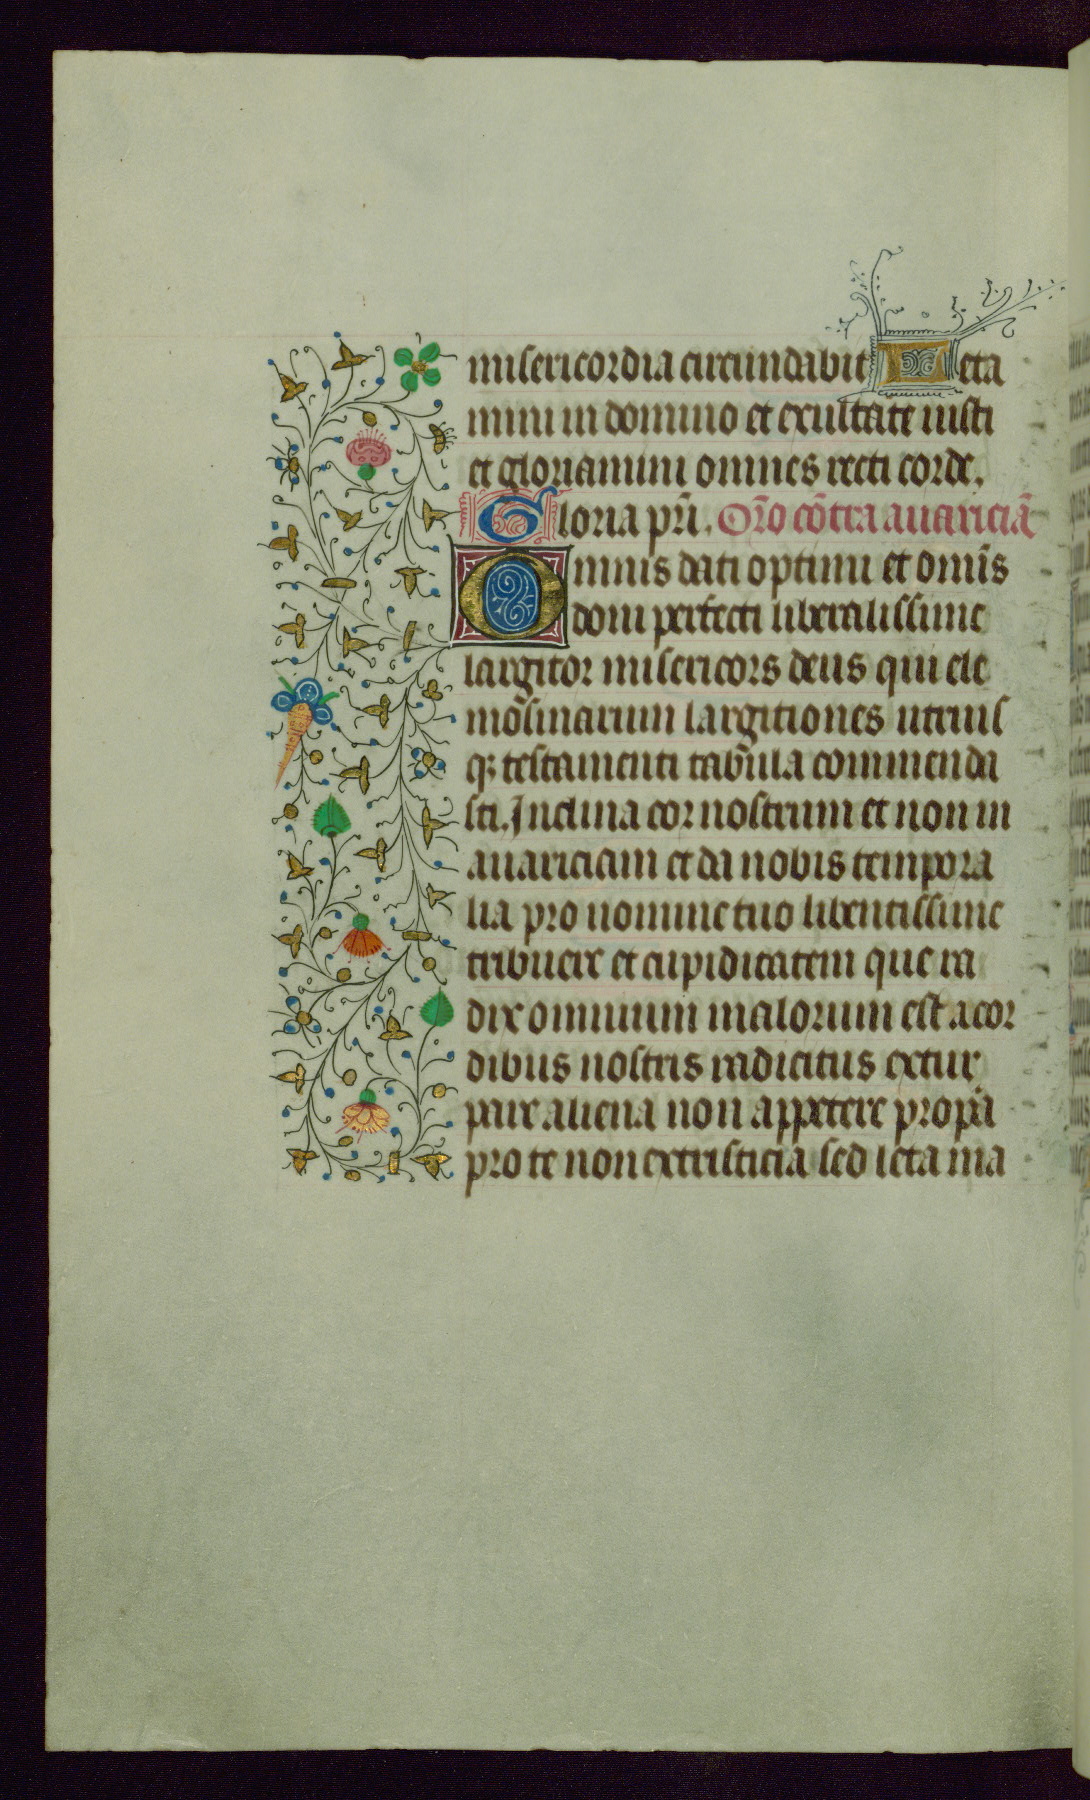 misericordia circundabit Leta
mini in domino et exultate iusti
et gloriamini omnes recti corde.
Gloria pr̄i. Or̄o cōtra auariciā
Omnis dati optimi et omīs
doni perfecti liberalissime
largitor misericors deus qui ele
mosinarum largitiones utrius
q; testamenti tabula commenda
sti. Inclina cor nostrum et non in
auariciam et da nobis tempora
lia pro nomine tuo libentissime
tribuere et cupiditatem que ra
dix omnium malorum est a cor
dibus nostris radicitus extir
pare aliena non appetere propria
pro te non ex tristicia sed leta ma